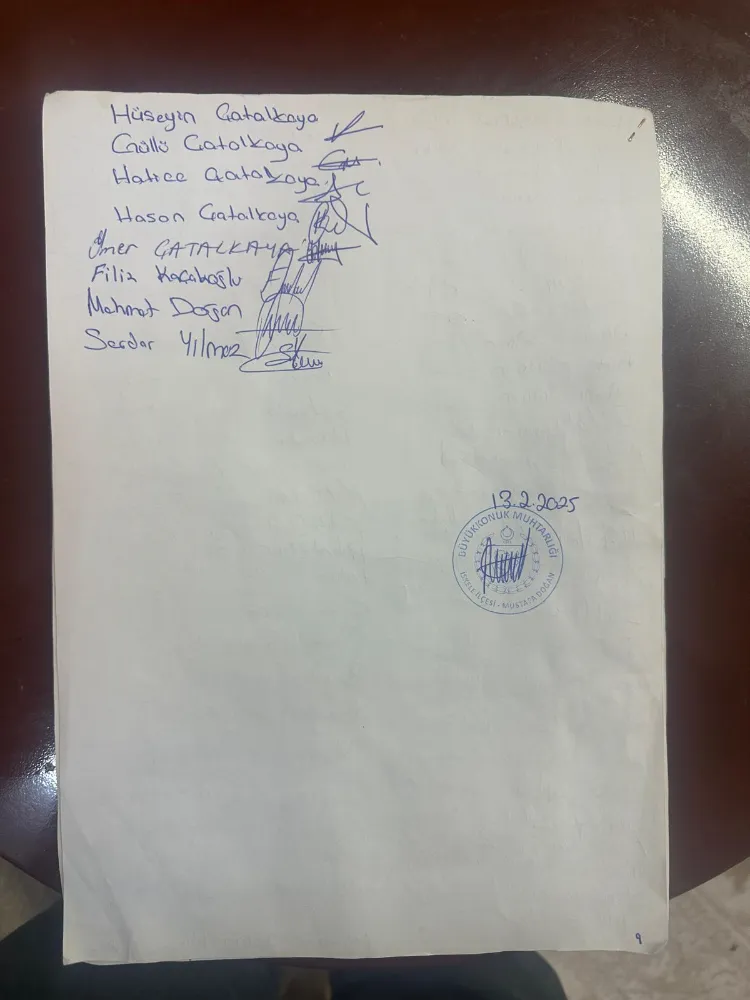 Hüseyin Çatalkaya
Güllü Çatalkaya
Hatice Çatalkaya
Hasan Çatalkaya
Ömer ÇATALKAYA
Filiz
Mehmet Doğan
Serdar Yılmaz
13.2.2025
BÜYÜKKONUK MUHTARLIĞI
İSKELE İLÇESİ - MUSTAFA DOĞAN
9